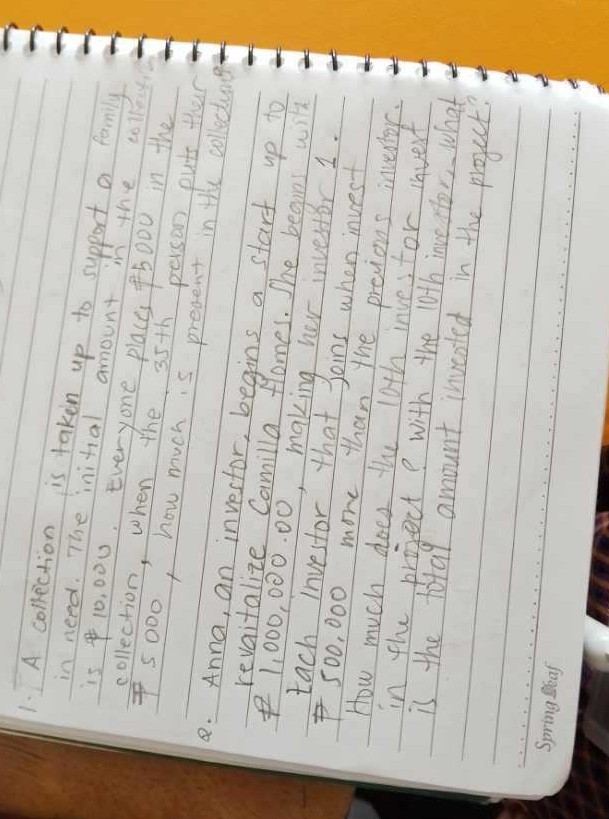 1. A collection is taken up to support a family
in need. The initial amount in the collection
is ₱ 10,000. Everyone places ₱5000 in the
collection, when the 35th person puts their
₱ 5000, how much is present in the collection
2. Anna, an investor, begins a start up to
revaitalize Camilla Homes. She begins with
₱ 1,000,000.00, making her investor 1.
Each investor that joins when invest
₱ 500,000 more than the previous investor.
How much does the 10th investor invest
in the project? with the 10th investor, what
is the total amount invested in the project?
Spring Leaf